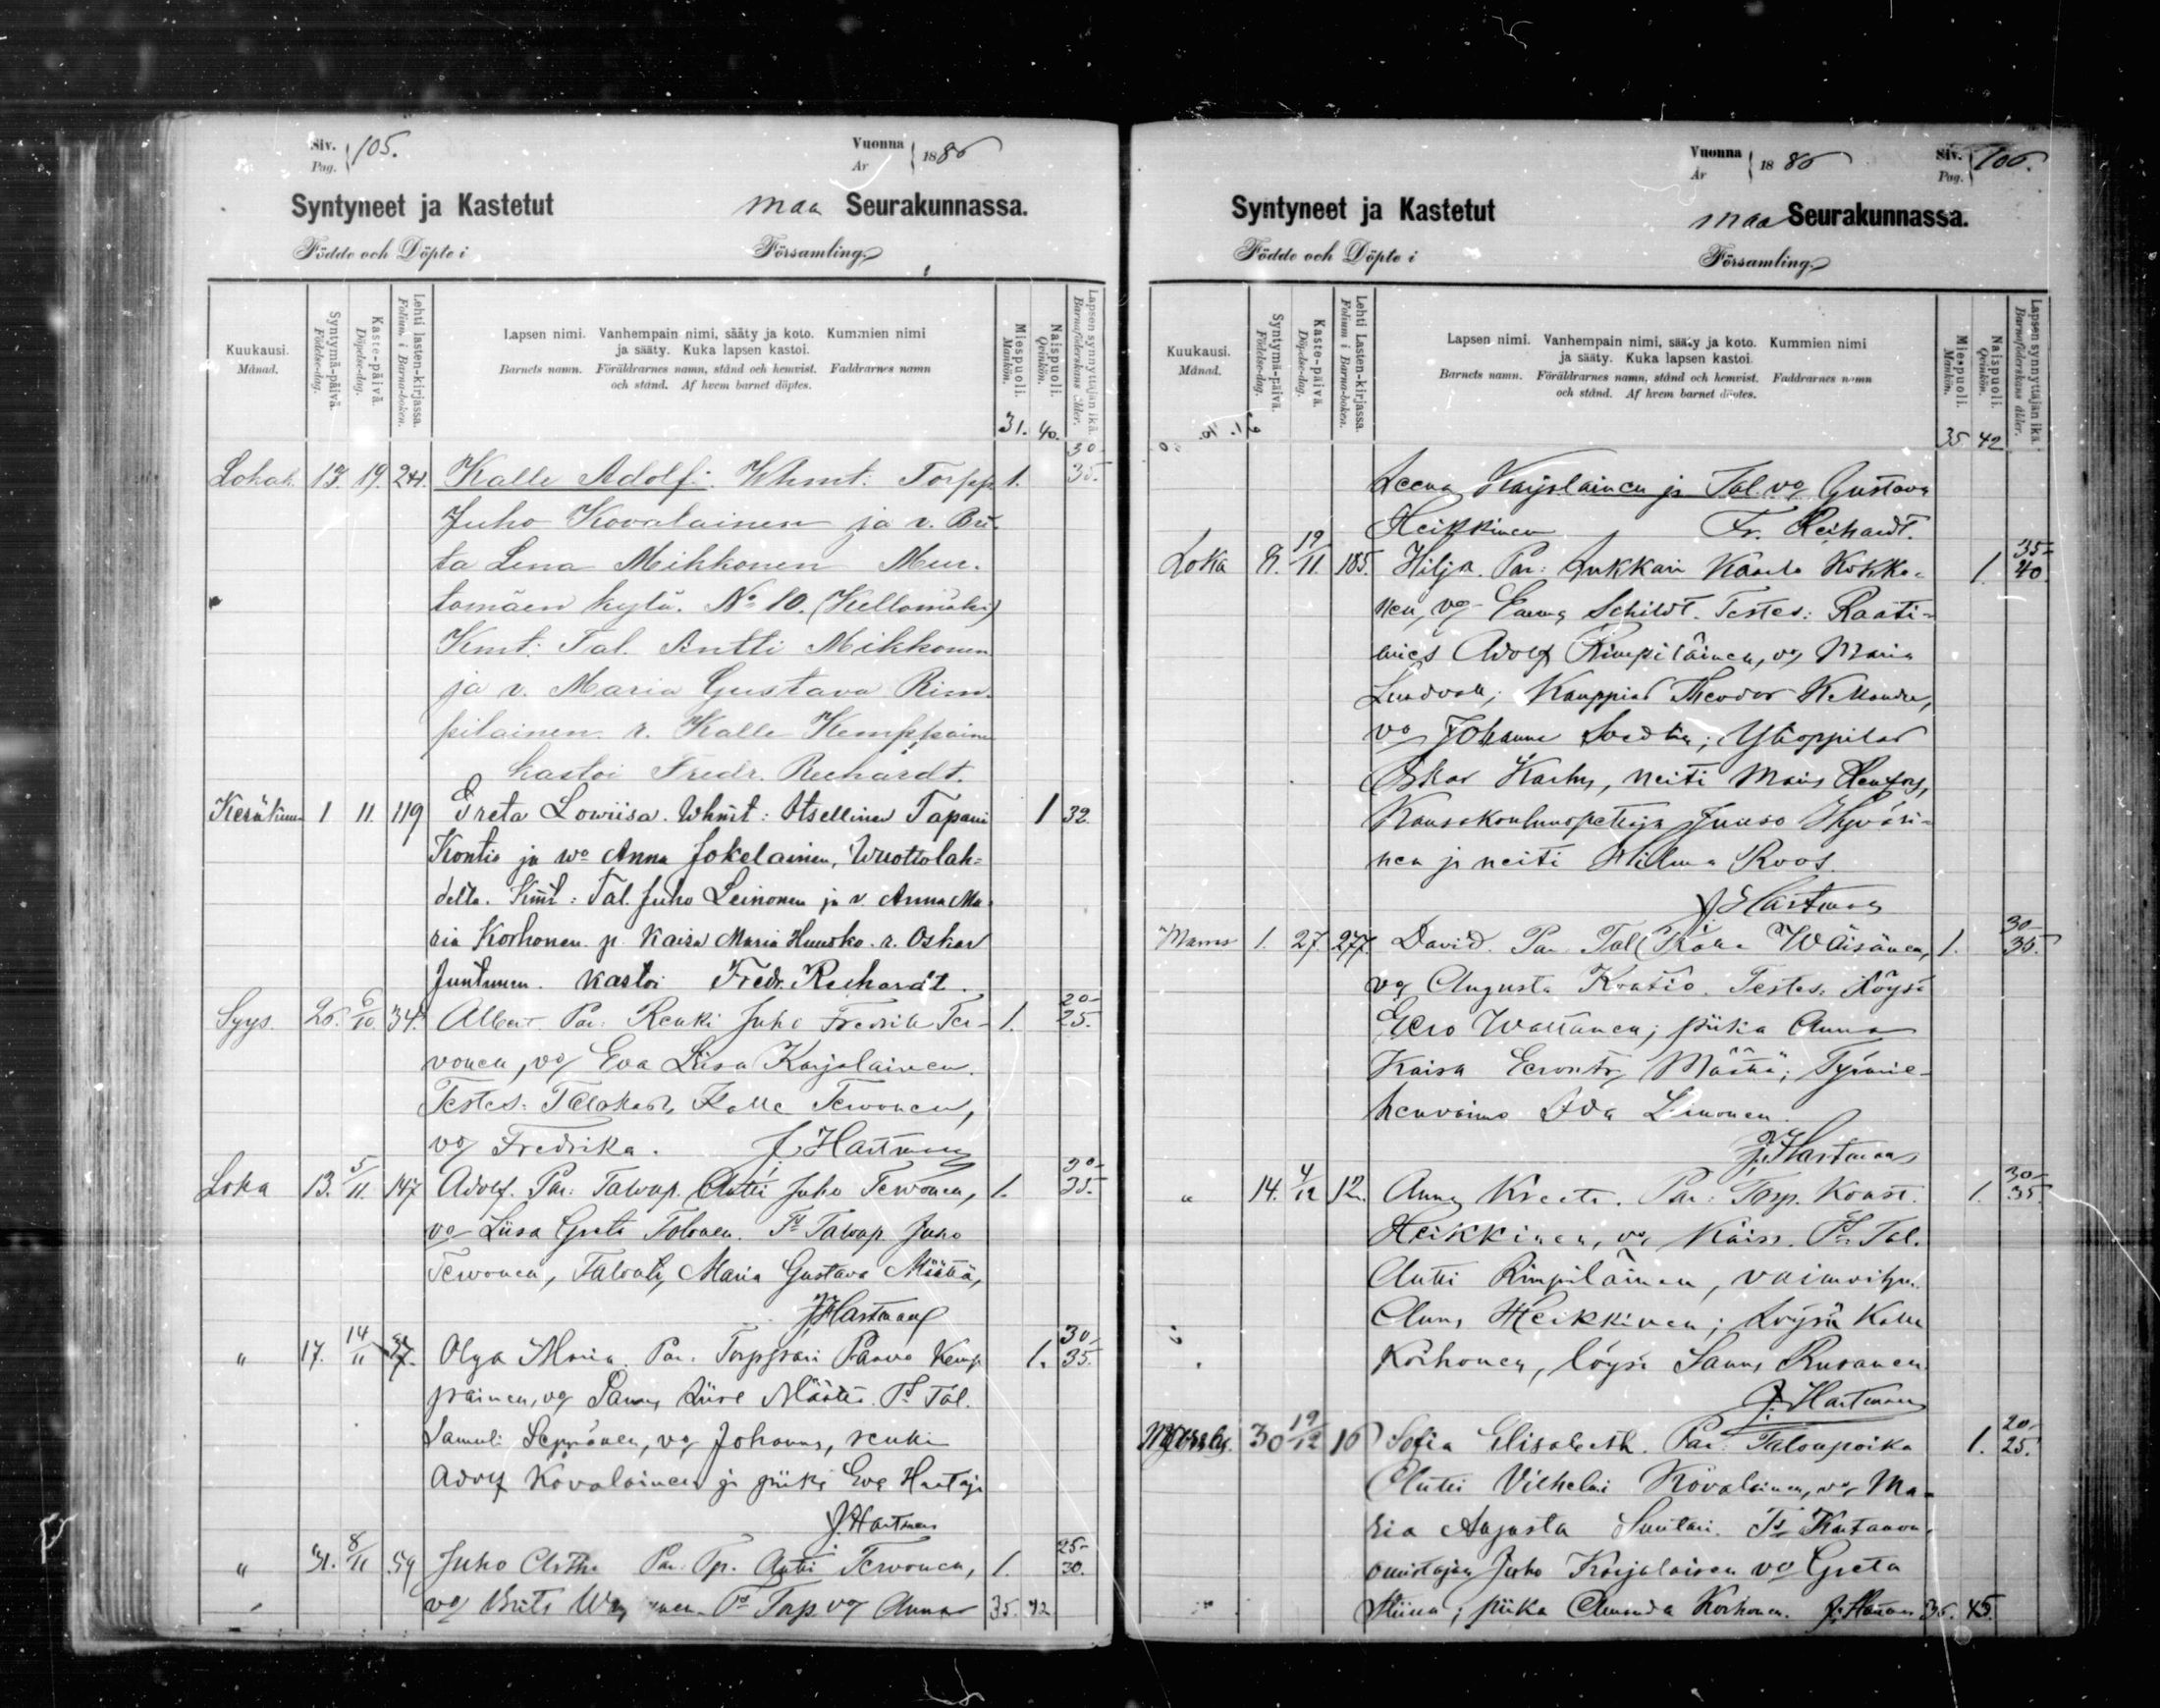 Siv. Pag. 105.
Vuonna År 1886
Syntyneet ja Kastetut maa Seurakunnassa.
Födde och Döpte i Församling.
Kuukausi. Månad.
Syntymä-päivä. Födelse-dag.
Kaste-päivä. Döpelse-dag.
Lehti lasten-kirjassa. Folium i Barna-boken.
Lapsen nimi. Vanhempain nimi, sääty ja koto. Kummien nimi
ja sääty. Kuka lapsen kastoi.
Barnets namn. Föräldrarnes namn, stånd och hemvist. Faddrarnes namn
och stånd. Af hvem barnet döptes.
Miespuoli. Mankön.
Naispuoli. Qvinkön.
Lapsen synnyttäjän ikä. Barnaföderskans ålder.
31. 40.
Lokak. 13. 19. 241. Kalle Adolf. Whmt: Torpp. 1. 30 35.
Juho Kovalainen ja v. Brii-
ta Lena Mikkonen Mur-
tomäen kylä. No 10. (Kellomäki)
Kmt: Tal. Antti Mikkonen
ja v. Maria Gustava Rim-
piläinen. r. Kalle Kemppainen
kastoi Fredr. Rechardt.
Kesäkuu 1 11 119 Greta Lowiisa. Whmt: Itsellinen Tapani 1 32.
Kontio ja wo Anna Jokelainen, Wuottolah-
delta. Kmt: Tal. Juho Leinonen ja v. Anna Ma-
ria Korhonen. p. Kaisa Maria Hunsko. r. Oskar
Juntunen. kastoi Fredr. Rechardt.
Syys. 26. 6/10. 34. Albert. Par: Renki Juho Fredrik Ter- 1. 20- 25.
vonen, vo Eva Liisa Karjalainen.
Testes: Talokas Kalle Tervonen,
vo Fredrika. J. Hartman
Loka 13. 5/11. 147 Adolf. Par: Talonp. Antti Juho Tervonen, 1. 30- 35.
vo Liisa Greta Tolonen. Ts Talonp. Juho
Tervonen, Talont. Maria Gustava Määttä,
J. Hartman
" 17. 14/11 37. Olga Maria. Par: Torppari Paavo Kemp- 1. 30- 35.
painen, vo Sanna Liise Määttä. Ts Tal.
Samuli Leppänen, vo Johanna, renki
Adolf Kovalainen ja piika Eva Hartaja
J. Hartman
" 31. 8/11 59 Juho Par: Tp. Antti Tervonen, 1. 25- 30.
vo Briita Ts Torp. vo Anna 35. 42
Vuonna År 1886
Siv. Pag. 106.
Syntyneet ja Kastetut maa Seurakunnassa.
Födde och Döpte i Församling.
Kuukausi. Månad.
Syntymä-päivä. Födelse-dag.
Kaste-päivä. Döpelse-dag.
Lehti Lasten-kirjassa. Folium i Barna-boken.
Lapsen nimi. Vanhempain nimi, sääty ja koto. Kummien nimi
ja sääty. Kuka lapsen kastoi.
Barnets namn. Föräldrarnes namn, stånd och hemvist. Faddrarnes namn
och stånd. Af hvem barnet döptes.
Miespuoli. Mankön.
Naispuoli. Qvinkön.
Lapsen synnyttäjän ikä. Barnaföderskans ålder.
35. 42
Leena Karjalainen ja Tal. vo Gustava
Heikkinen Fr. Reihardt.
Loka 9. 19/11. 185. Hilja. Par: Lukkari Kaarlo Kokko- 1. 35- 40.
nen, vo Emma Schildt. Testes: Raati-
mies Adolf Rimpiläinen, vo Maria
Lundvall; Kauppias Theodor
vo Johanna ; Ylioppilas
Oskar Karhu, neiti
Kansakoulunopettaja Juuso Hyväri-
nen ja neiti Hilma Roos.
J. Hartman
Marras 1. 27. 277. David. Par: Tal. Wäisänen, 1. 30- 35.
vo Augusta Kontio. Testes: löysä
Eero Wattanen; piika Anna
Kaisa Määttä; Työmie-
henvaimo Ida Limonen
J. Hartman
" 14. 4/12 12. Anna Kreeta. Par: Torp. Konst. 1. 30- 35.
Heikkinen, vo Kaisa. Ts Tal.
Antti Rimpiläinen,
Anna Heikkinen; Löysä Kalle
Korhonen, löysä Sanna Rusanen
J. Hartman
30 19/12 16 Sofia Elisabeth. Par: Talonpoika 1. 20- 25.
Antti Vilhelmi Kovalainen, vo Ma-
ria Augusta Suutari. Ts Kartanon-
omistajan Juho Karjalainen vo Greta
Stiina; piika Amanda Korhonen. J. Hartman 36. 45.